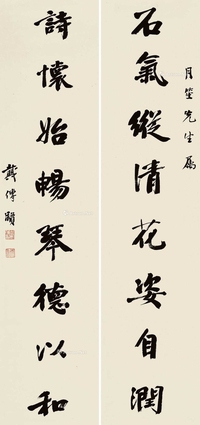 月笙先生屬
石氣縱清花姿自潤
詩懷始暢琴德以和
戴傳賢